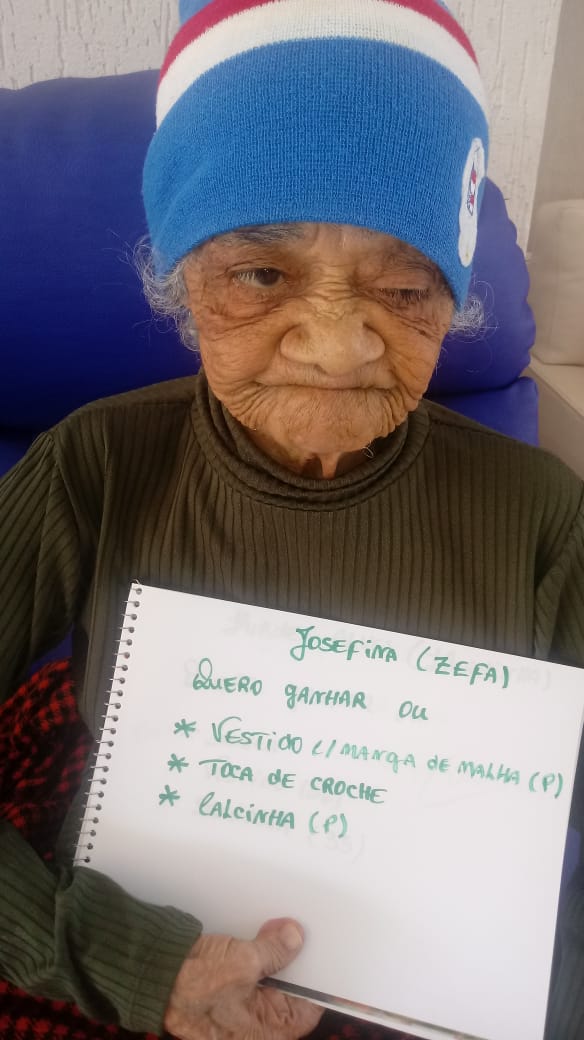 Josefina (ZEFA)
QUERO GANHAR OU
* VESTIDO C/ MANGA DE MALHA (P)
* TOCA DE CROCHE
* CALCINHA (P)